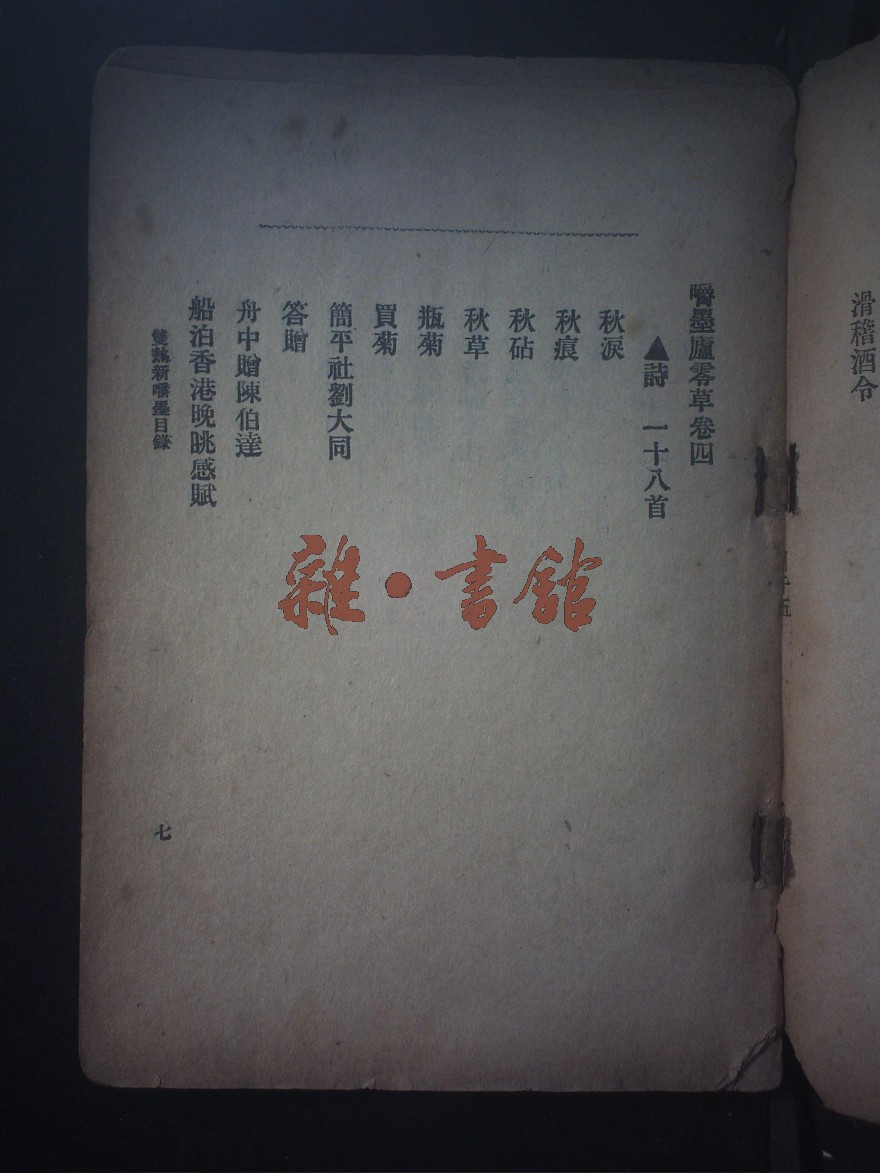 滑稽酒令
嚼墨廬零草卷四
▲詩 一十八首
秋淚
秋痕
秋砧
秋草
瓶菊
買菊
簡平社劉大同
答贈
舟中贈陳伯達
船泊香港晚眺感賦
雙熱新嚼墨目錄
七
雜·書館